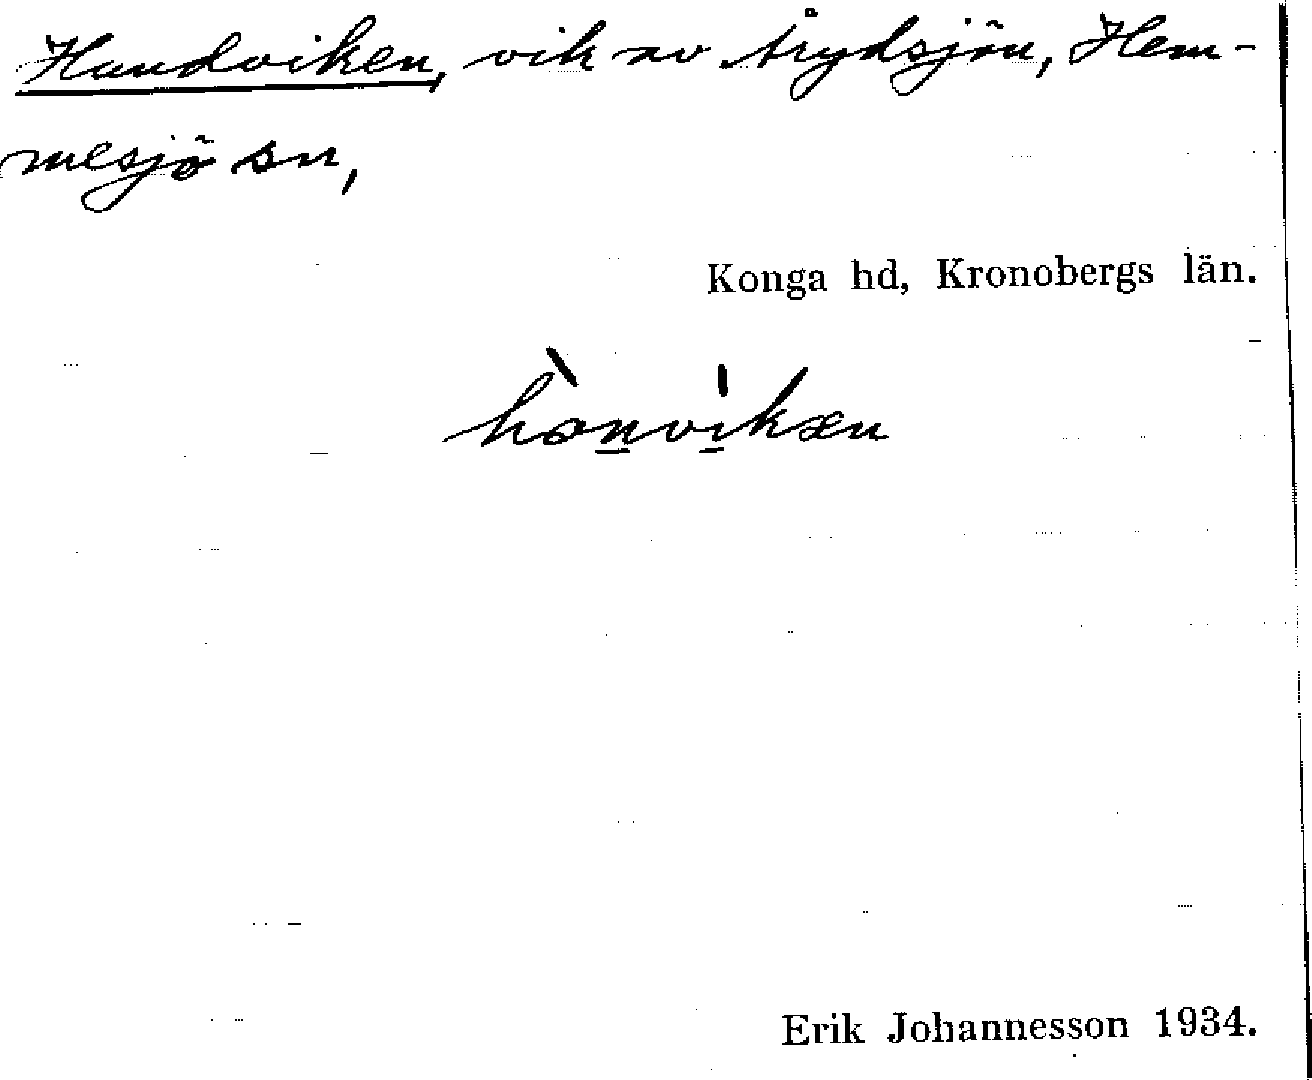 Hundviken, vik av Årydsjön, Hem-
mesjö sn,
Konga hd, Kronobergs län.
hònvìkæn
Erik Johannesson 1934.